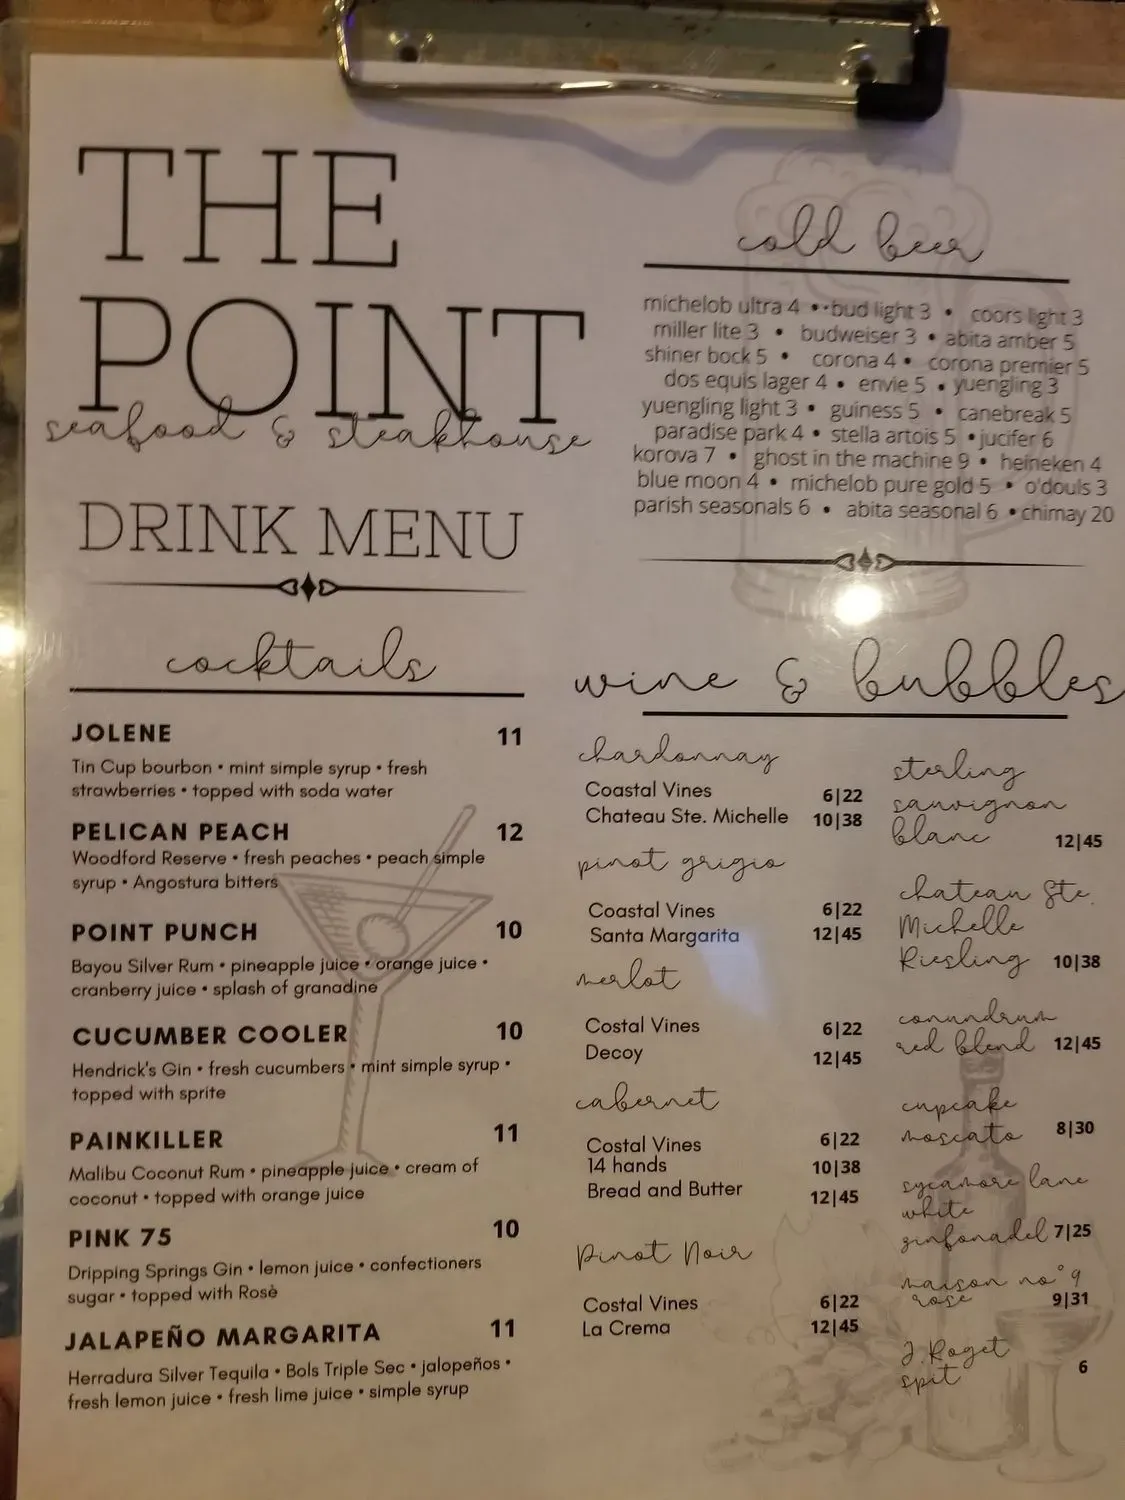 THE
POINT
seafood & steakhouse
DRINK MENU
cocktails
JOLENE 11
Tin Cup bourbon • mint simple syrup • fresh
strawberries • topped with soda water
PELICAN PEACH 12
Woodford Reserve • fresh peaches • peach simple
syrup • Angostura bitters
POINT PUNCH 10
Bayou Silver Rum • pineapple juice • orange juice •
cranberry juice • splash of granadine
CUCUMBER COOLER 10
Hendrick's Gin • fresh cucumbers • mint simple syrup •
topped with sprite
PAINKILLER 11
Malibu Coconut Rum • pineapple juice • cream of
coconut • topped with orange juice
PINK 75 10
Dripping Springs Gin • lemon juice • confectioners
sugar • topped with Rosè
JALAPEÑO MARGARITA 11
Herradura Silver Tequila • Bols Triple Sec • jalopeños •
fresh lemon juice • fresh lime juice • simple syrup
cold beer
michelob ultra 4 • • bud light 3 • coors light 3
miller lite 3 • budweiser 3 • abita amber 5
shiner bock 5 • corona 4 • corona premier 5
dos equis lager 4 • envie 5 • yuengling 3
yuengling light 3 • guiness 5 • canebreak 5
paradise park 4 • stella artois 5 • jucifer 6
korova 7 • ghost in the machine 9 • heineken 4
blue moon 4 • michelob pure gold 5 • o'douls 3
parish seasonals 6 • abita seasonal 6 • chimay 20
wine & bubbles
chardonnay
Coastal Vines 6|22
Chateau Ste. Michelle 10|38
pinot grigio
Coastal Vines 6|22
Santa Margarita 12|45
merlot
Costal Vines 6|22
Decoy 12|45
cabernet
Costal Vines 6|22
14 hands 10|38
Bread and Butter 12|45
Pinot Noir
Costal Vines 6|22
La Crema 12|45
sterling
sauvignon
blanc 12|45
chateau Ste.
Michelle
Riesling 10|38
conundrum
red blend 12|45
cupcake
moscato 8|30
sycamore lane
white
zinfonadel 7|25
maison no°9
rose 9|31
J. Roget
spit 6